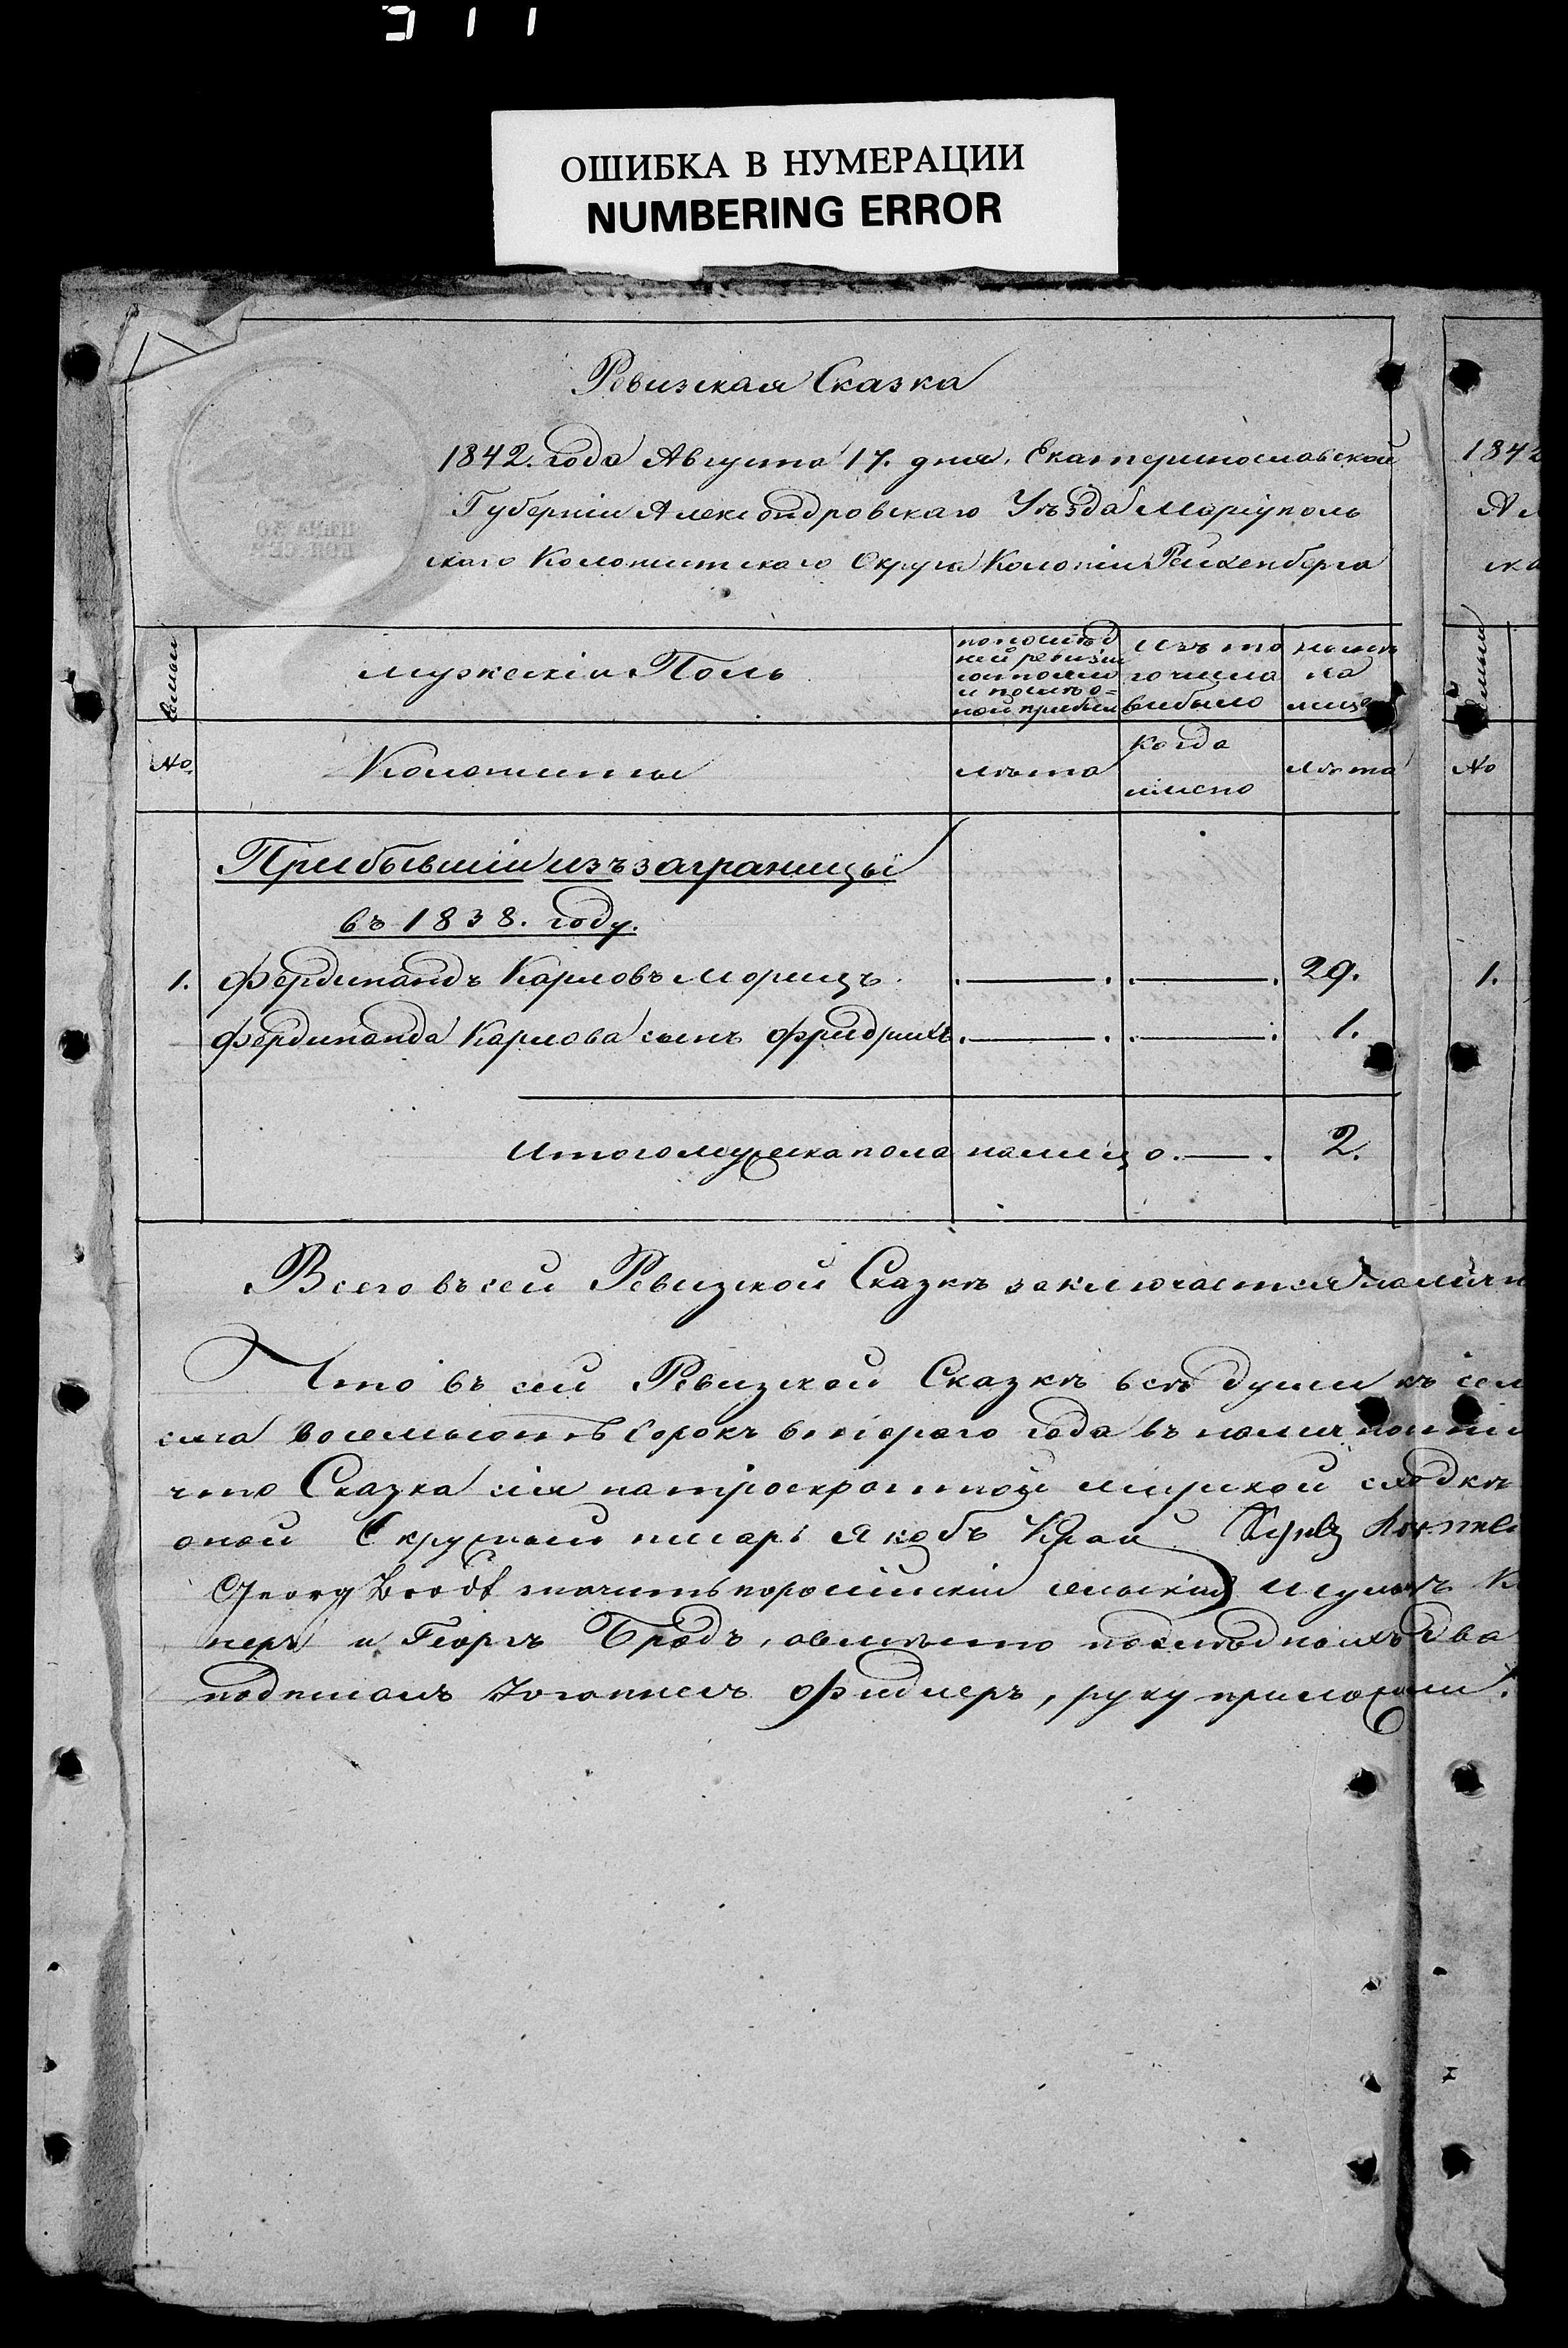 311
ОШИБКА В НУМЕРАЦИИ
NUMBERING ERROR
Ревизская Сказка
1842. года Августа 17. дня, Екатеринославской
Губерніи Александровскаго Уѣзда Маріуполь
скаго Колонистскаго Округа Колоніи Рейхенберга
1842
семьи
мужескій Полъ
по послѣд
ней ревизіи
состояло
и послѣ о-
ной прибыло
Изъ то
го числа
выбыло
нынѣ
на
лицо
No
Колонисты
лѣта
когда
имено
лѣта
No
Прибывшіи изъ заграницы
въ 1838. году.
1. Фердинандъ Карловъ Морицъ . — . . — . 29.
1.
Фердинанда Карлова сынъ Фридрихъ . — . . — . 1.
Итого мужеска пола на лицо . — . 2.
Всего въ сей Ревизской Сказкѣ заключается
Что въ сей Ревизской Сказкѣ всѣ души къ
восемьсотъ сорокъ втораго года въ
что Сказка сія мирской сходкѣ
оной Окружной писарь Якобъ Schulz
Georg Brodt значитъ по россійскій сельскій Шульцъ
неръ и Георгъ Бродъ, а вмѣсто послѣднихъ два
подписалъ Іоганнесъ Фидлеръ, руку приложили.